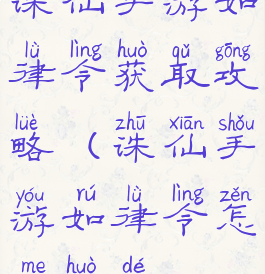 诛仙手游如
lǜ lìng huò qǔ gōng
律令获取攻
lüè zhū xiān shǒu
略（诛仙手
yóu rú lǜ lìng zěn
游如律令怎
me huò dé